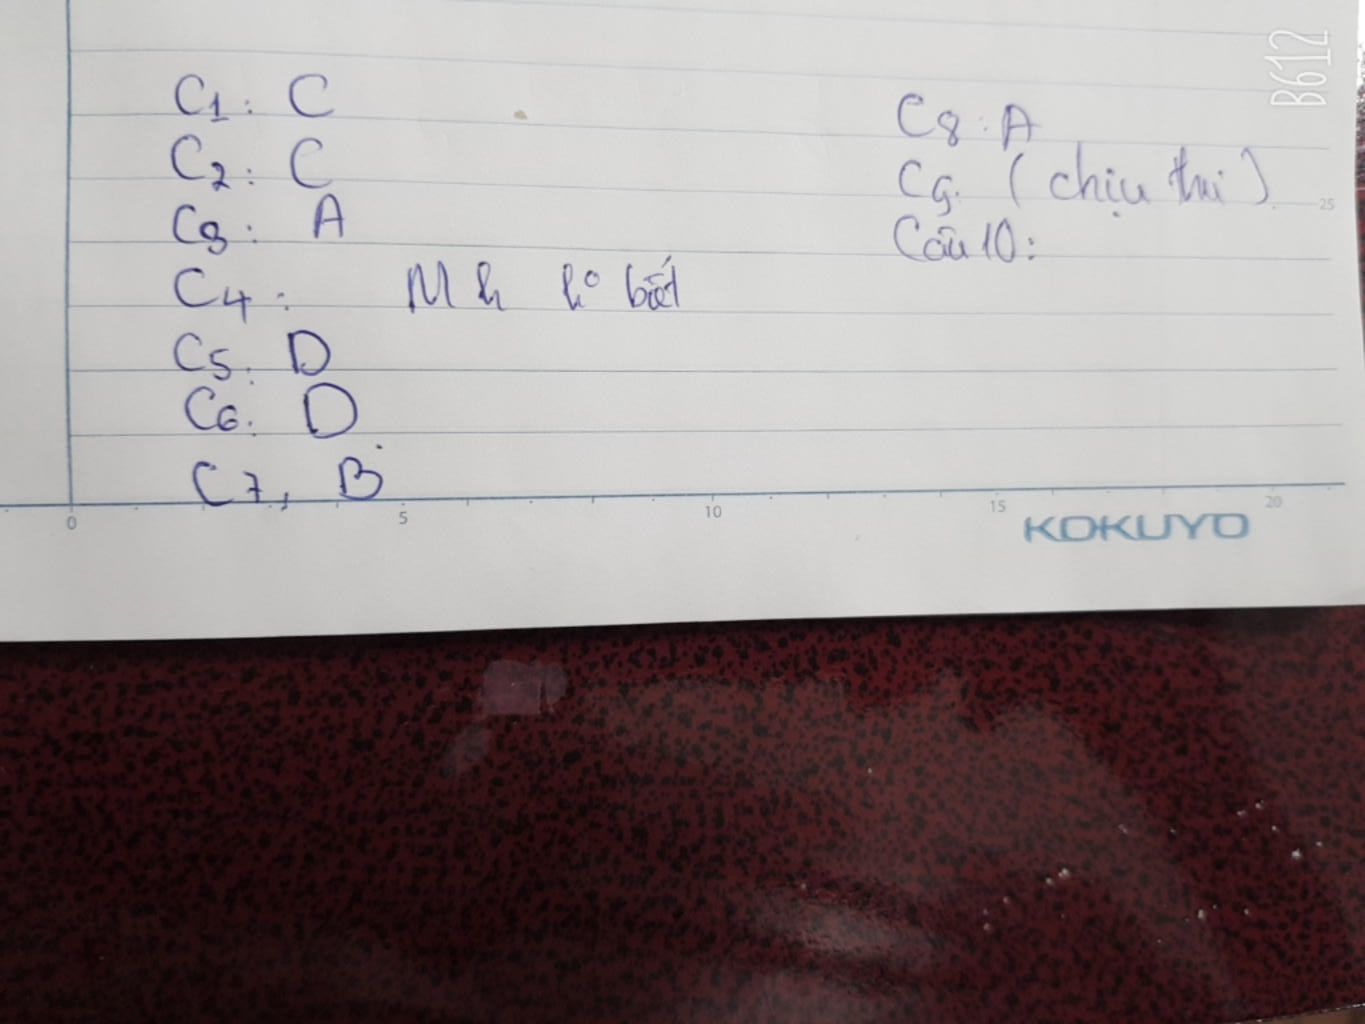 C1: C
C2: C
C3: A
C4: Mk ko biết
C5: D
C6: D
C7, B
C8: A
C9: (chịu thui)
Câu 10:
0 5 10 15 20
25
KOKUYO
B612